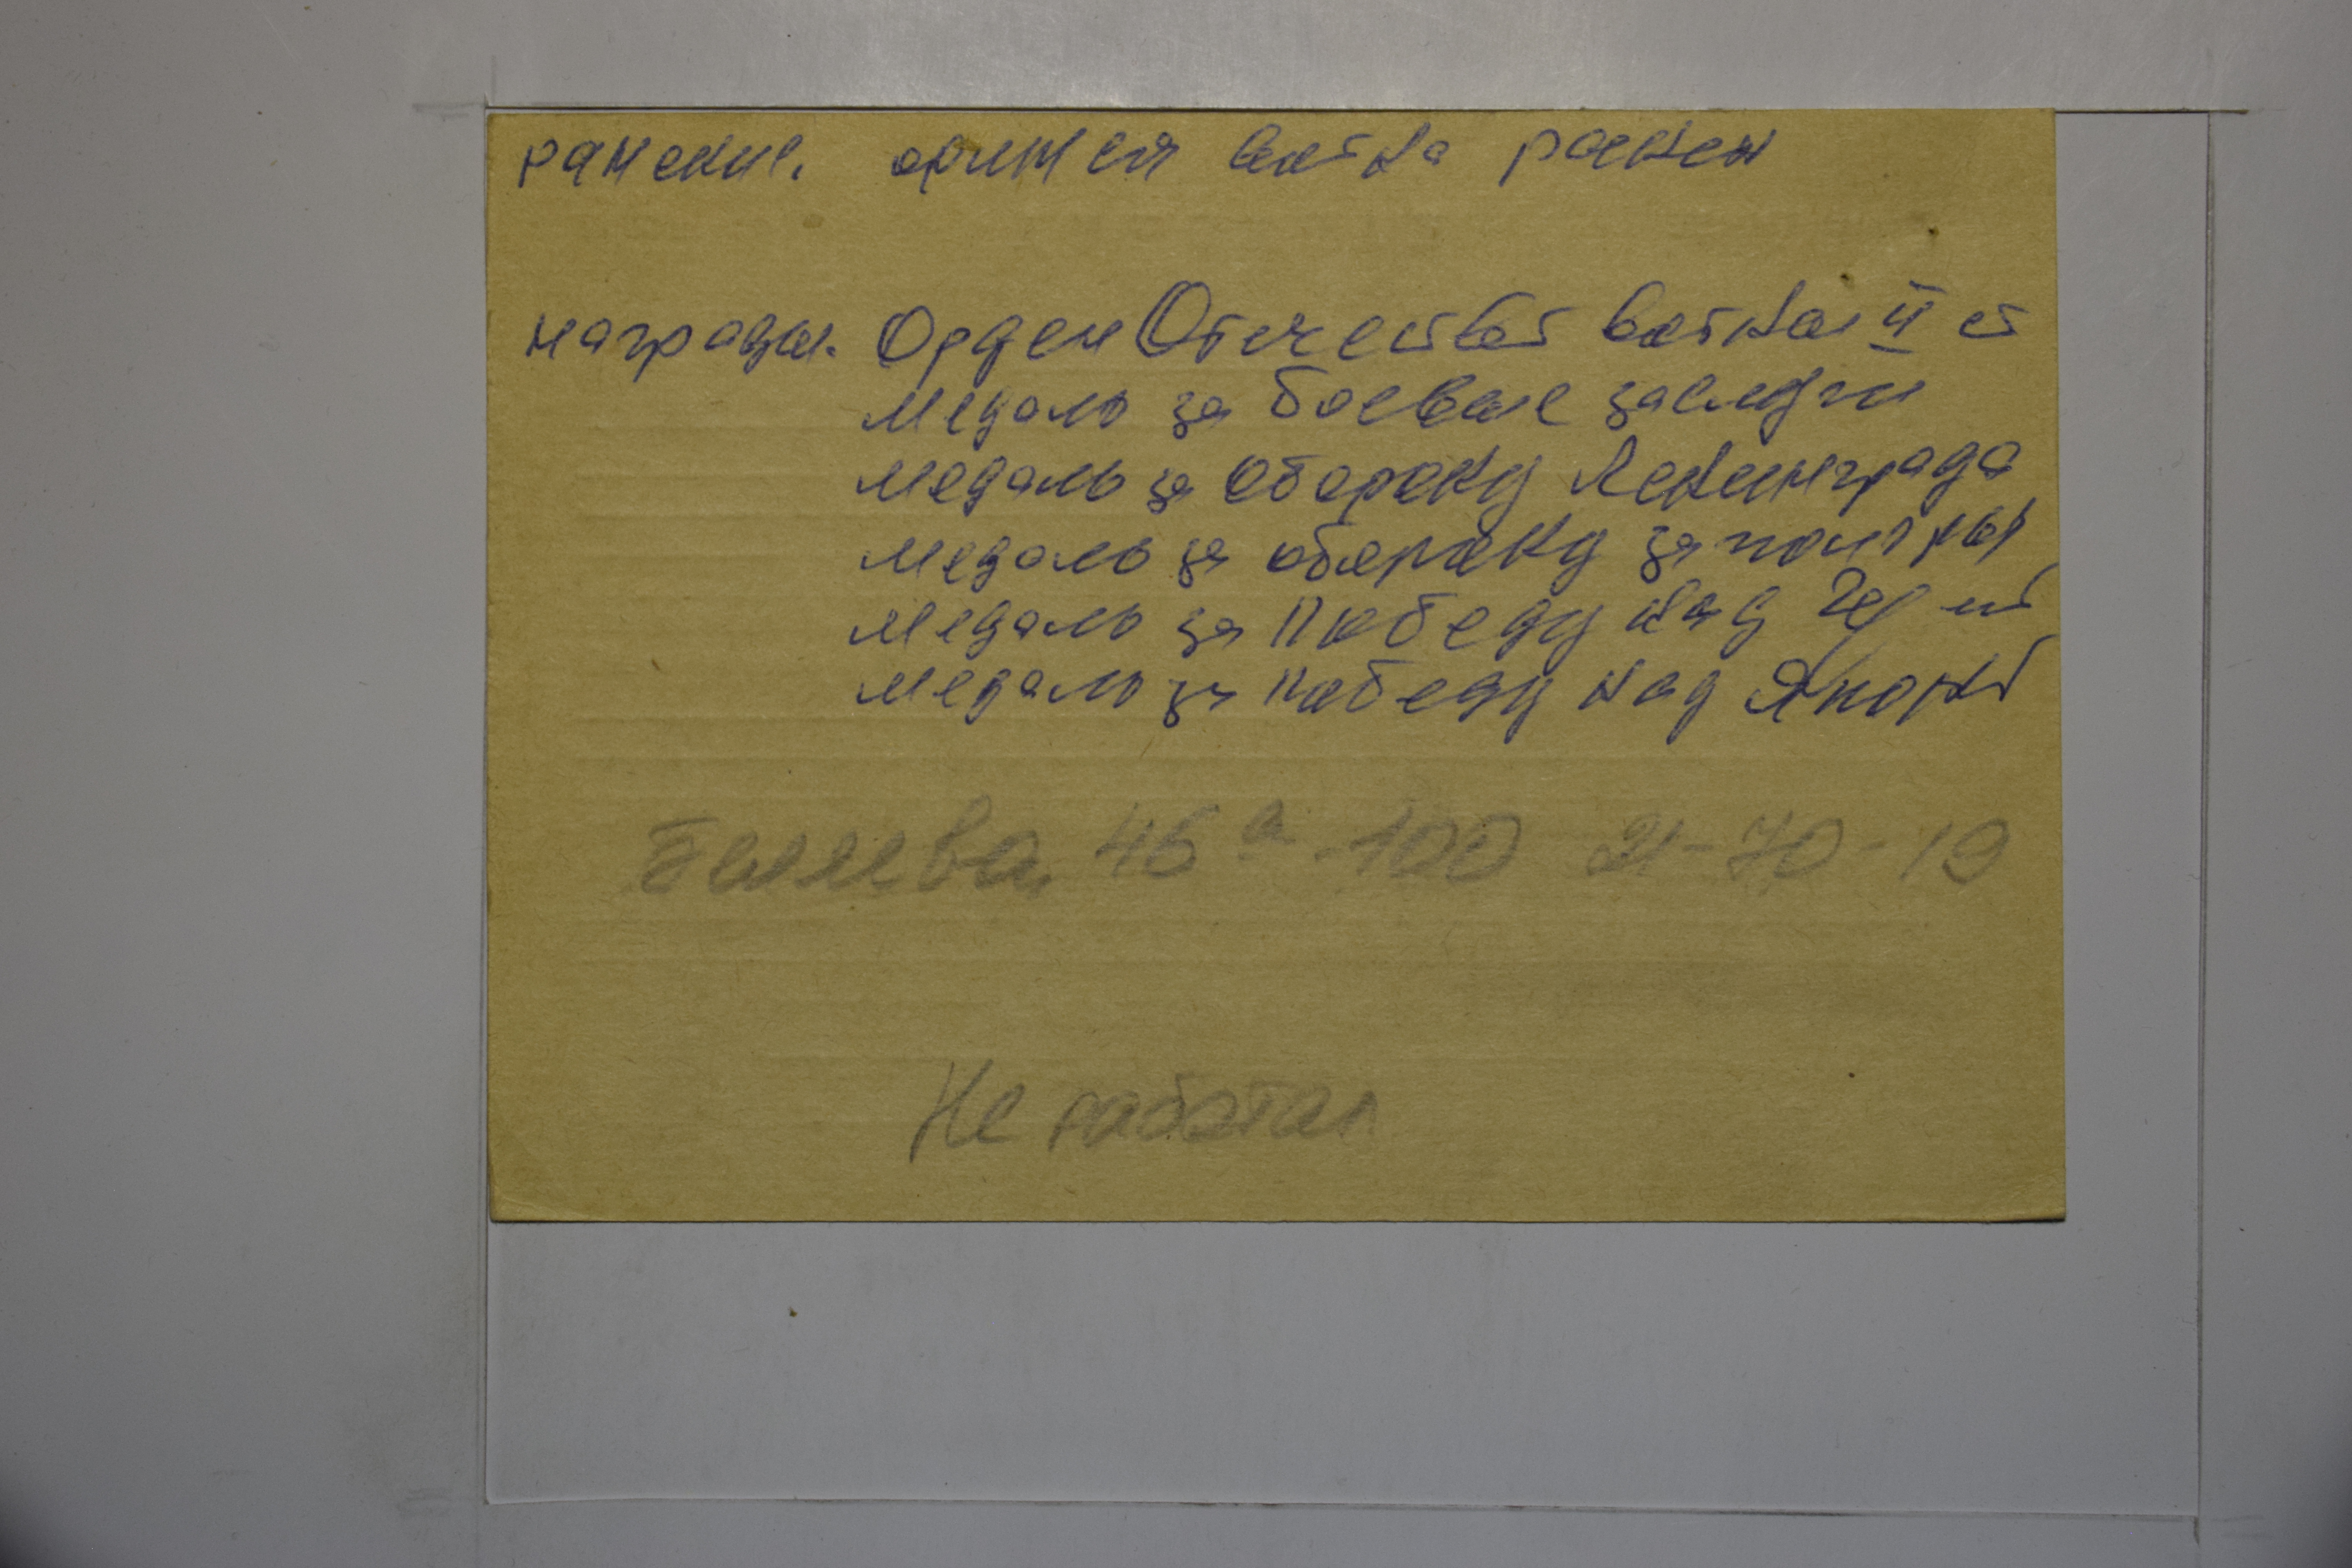 ранение. финская война ранен
награды. Орден Отечеств войны II ст
медаль за боевые заслуги
медаль за оборону Ленинграда
медаль за оборону заполяры
медаль за Победу над Гер
медаль за победу над Япон
46а-100 21-70-19
Не работал